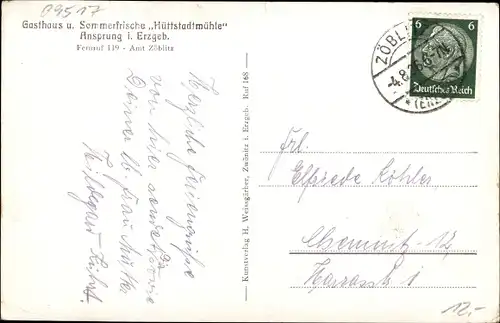 09517
Gasthaus u. Sommerfrische „Hüttstadtmühle"
Ansprung i. Erzgeb.
Fernruf 119 - Amt Zöblitz
Herzliche Feriengrüße
von hier sendet Dir u.
Deiner lb. Frau Mutter
Hildegard
Kunstverlag H. Weissgärber, Zwönitz i. Erzgeb. Ruf 168
ZÖBLI
-4.8.
(ERZ
6 6
Deutsches Reich
Frl.
Elfriede Köhler
Chemnitz-12,
12.-